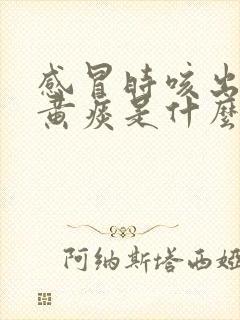 感冒時咳出
黃痰是什麼
阿纳斯塔西娅